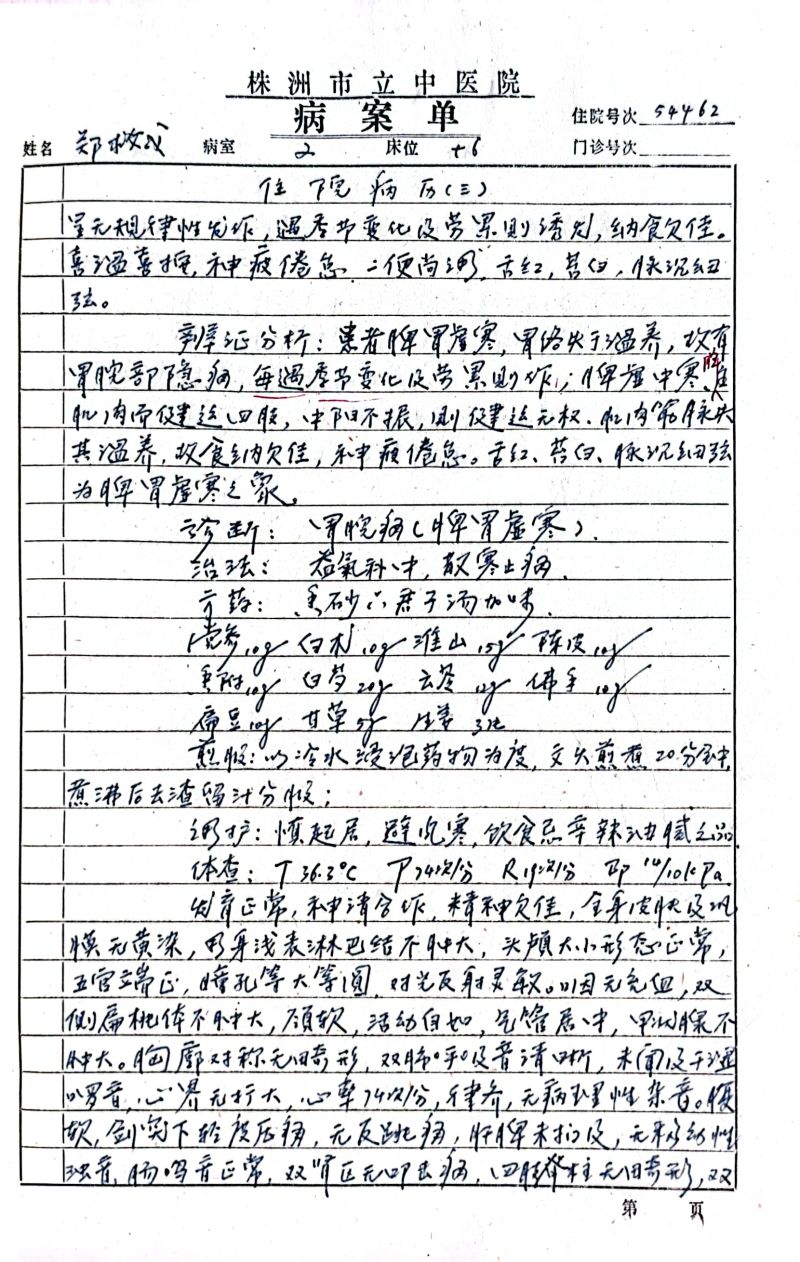 株洲市立中医院
病案单
住院号次 54462
姓名 郑 病室 2 床位 +6 门诊号次
住院病历(三)
呈无规律性发作,遇季节变化及劳累则诱发,纳食欠佳。
喜温喜按,神疲倦怠 二便尚调,舌红,苔白,脉沉细
弦。
辨证分析:患者脾胃虚寒,胃络失于温养,故有
胃脘部隐痛,每遇季节变化及劳累则作;脾虚中寒,
肌肉而健运四肢,中阳不振,则健运无权、肌肉筋脉失
其温养,故食纳欠佳,神疲倦怠。舌红、苔白、脉沉细弦
为脾胃虚寒之象。
诊断: 胃脘痛(脾胃虚寒).
治法: 益氣补中,散寒止痛.
方药: 香砂六君子汤加味.
党参10g 白术10g 淮山15g 陈皮10g
香附10g 白芍20g 云苓12g 佛手10g
扁豆10g 甘草5g 生姜3片
煎服:以冷水浸泡药物为度,文火煎煮20分钟,
煮沸后去渣留汁分服;
调护:慎起居,避风寒,饮食忌辛辣油腻之品.
体查: T 36.3℃ P 74次/分 R 19次/分 Bp 14/10kPa
发育正常,神清合作,精神欠佳,全身皮肤及巩
膜无黄染,全身浅表淋巴结不肿大,头颅大小形态正常,
五官端正,瞳孔等大等圆,对光反射灵敏。咽无充血,双
侧扁桃体不肿大,颈软,活动自如,气管居中,甲状腺不
肿大。胸廓对称无畸形,双肺呼吸音清晰,未闻及干湿
啰音,心界无扩大,心率74次/分,律齐,无病理性杂音。腹
软,剑突下轻度压痛,无反跳痛,肝脾未扪及,无移动性
浊音,肠鸣音正常,双肾区无叩击痛,四肢脊柱无畸形,双
第 页